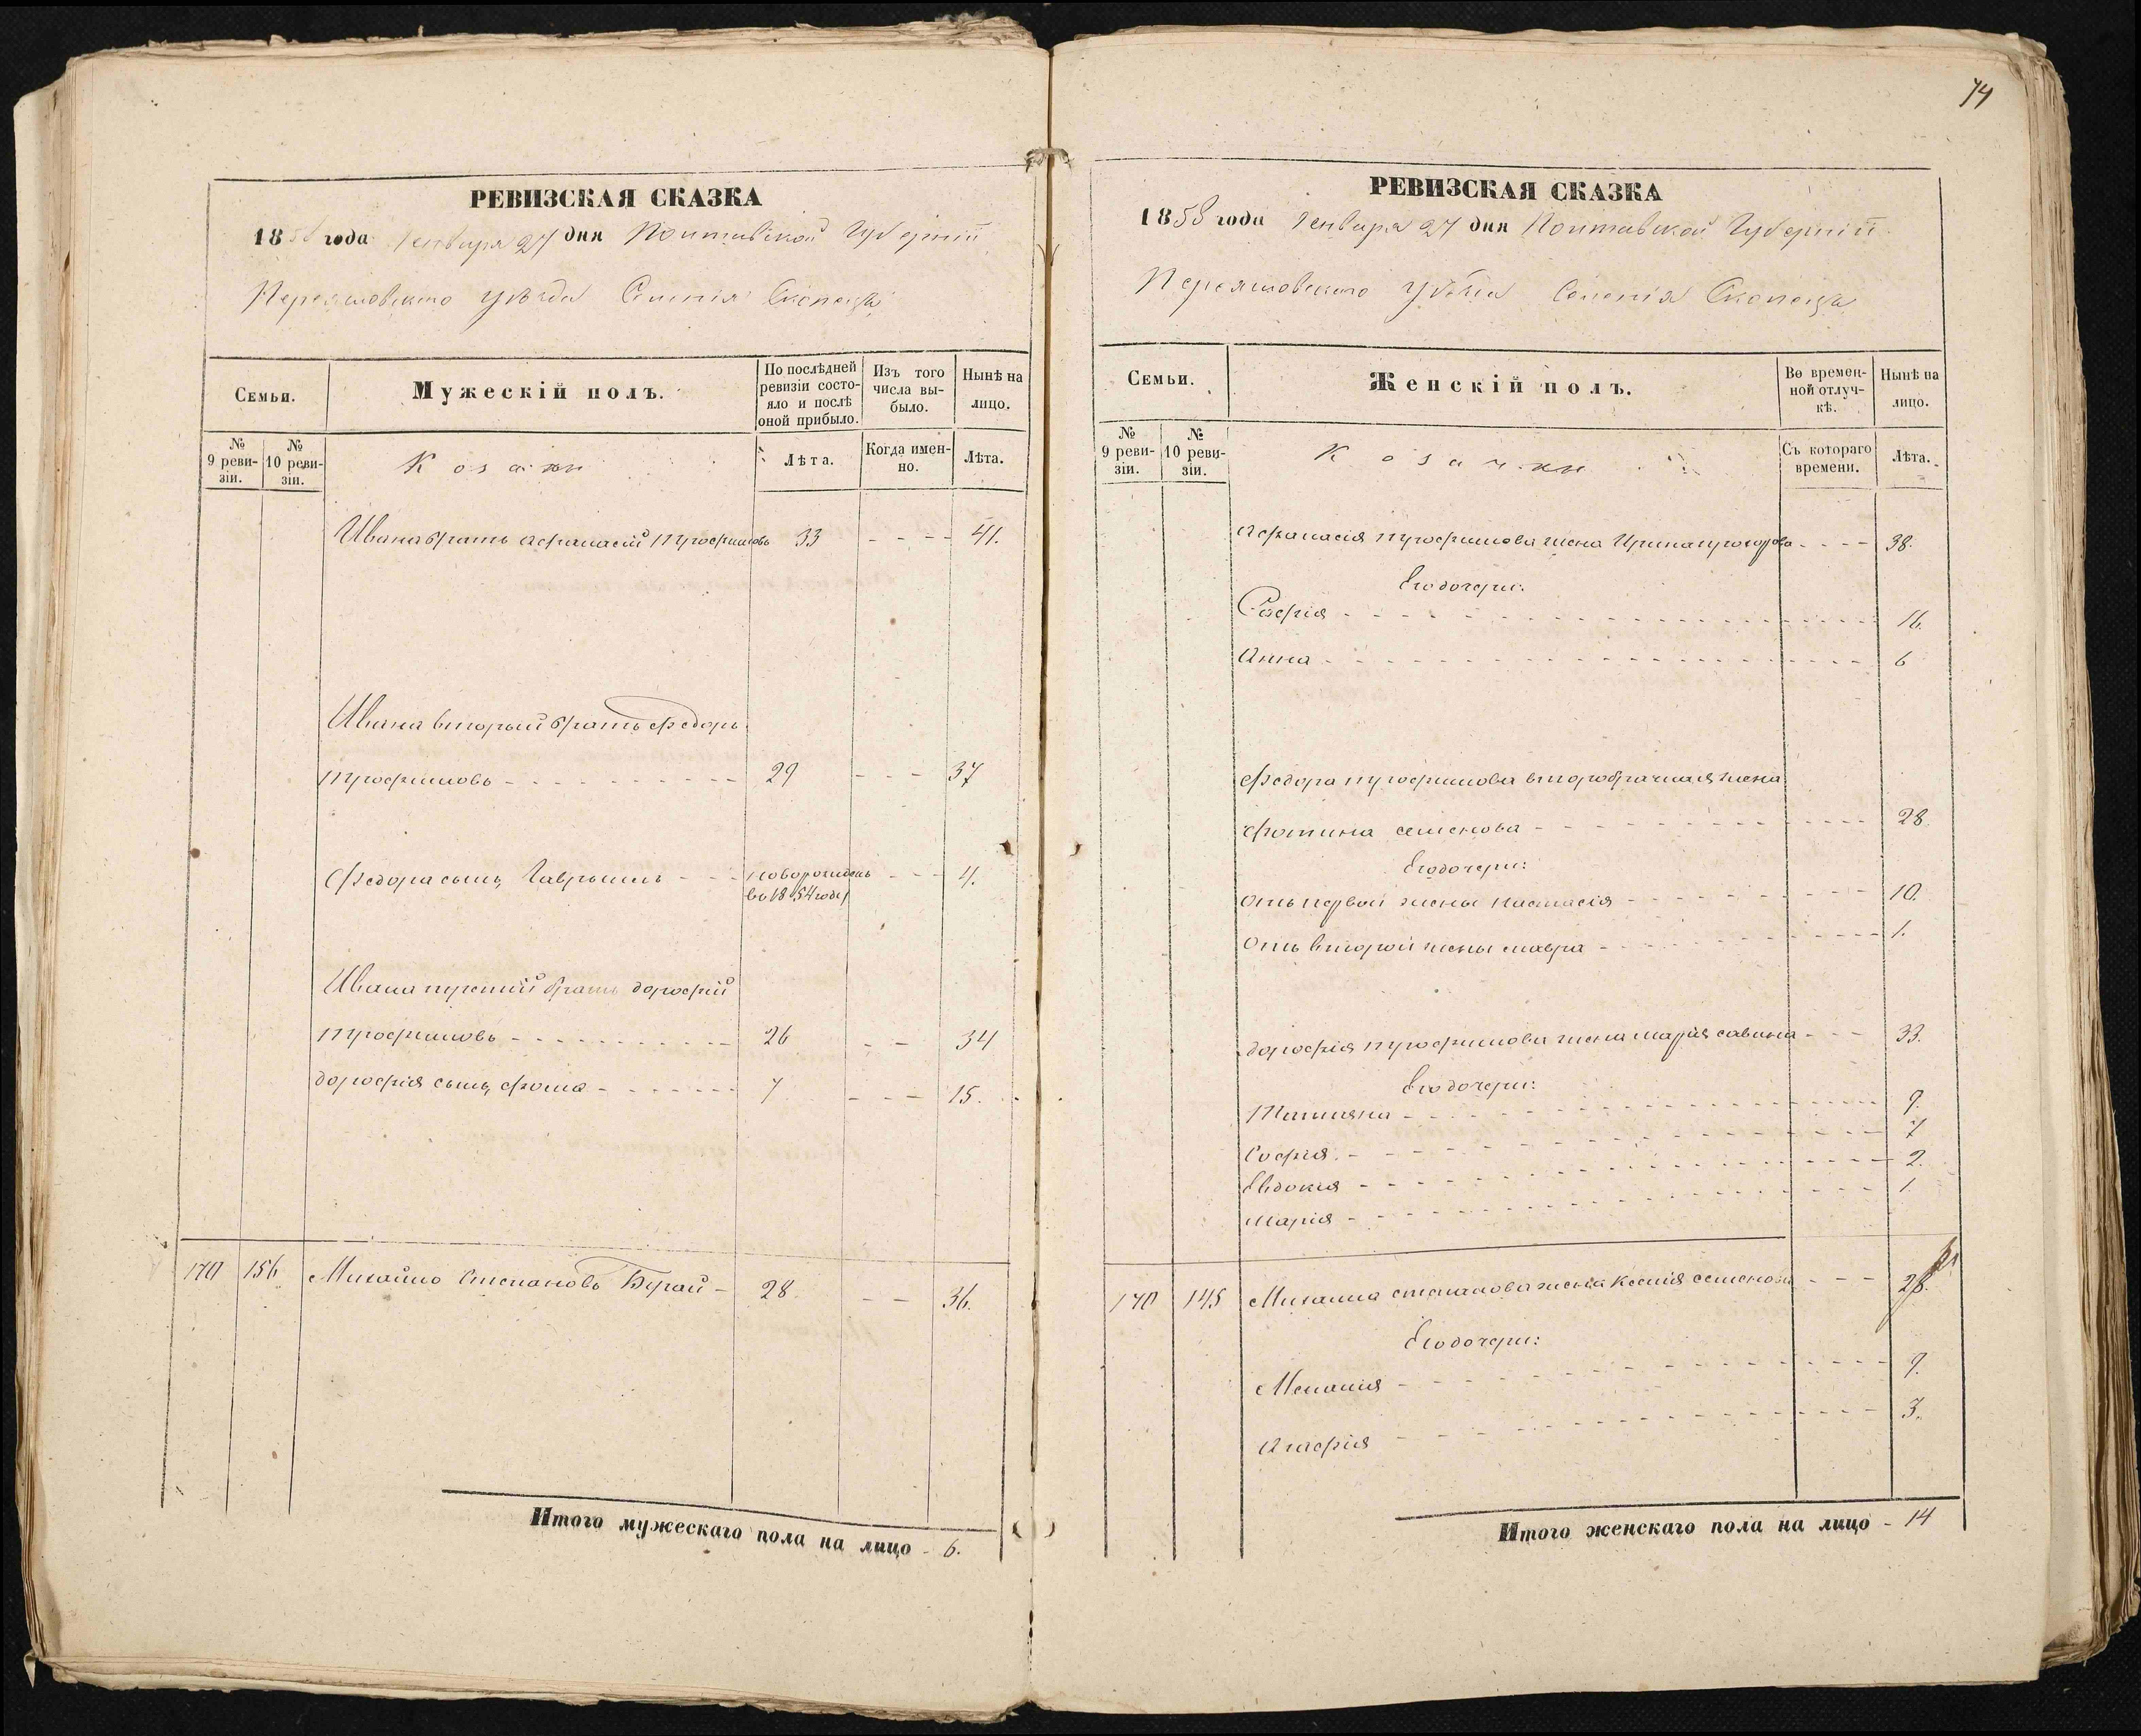 РЕВИЗСКАЯ СКАЗКА
1858 года Генваря 27 дня Полтавской Губерніи
Переяславского уѣзда Селенія Скопецъ
Семьи.
Мужескій полъ.
По послѣдней ревизіи состояло и послѣ оной прибыло.
Изъ того числа выбыло.
Нынѣ на лицо.
№ 9 ревизіи.
№ 10 ревизіи.
Козаки
Лѣта.
Когда именно.
Лѣта.
Ивана братъ Афанасій Трофимовъ 33 - - - - 41.
Ивана вторый братъ Федоръ
Трофимовъ - - - 29 - - - 37
Федора сынъ, Гаврыилъ - - - новорожденъ - - - 4.
въ 1854 году
Ивана третий братъ дорофій
Трофимовъ - - - 26 - - 34
дорофія сынъ, фома - - - 7 - - - 15.
170 156 Михайло Степановъ Бугай - 28. - - 36.
Итого мужескаго пола на лицо - 6.
74
РЕВИЗСКАЯ СКАЗКА
1858 года Генваря 27 дня Полтавской Губерніи
Переяславского уѣзда Селенія Скопецъ
Семьи.
Женскій полъ.
Во временной отлучкѣ.
Нынѣ на лицо.
№ 9 ревизіи.
№ 10 ревизіи.
Козачки
Съ котораго времени.
Лѣта.
Афанасія Трофимова жена Ирина прохорова - - - - 38.
Его дочери:
Софія - - - 16.
Анна - - - 6
Федора Трофимова второбрачная жена
фотина семенова - - - 28.
Его дочери:
отъ первой жены Настасія - - - 10.
отъ второй жены мавра - - - 1.
дорофія Трофимова жена марія савина - - - 33.
Его дочери:
Татіяна - - - 9.
Софія. - - - 7
Евдокія - - - 2.
марія - - - 1.
170 145 Михаила степанова жена Ксенія семенова - - - 28.
Его дочери:
Меланія - - - 9.
Агафія - - - 3.
Итого женскаго пола на лицо - 14